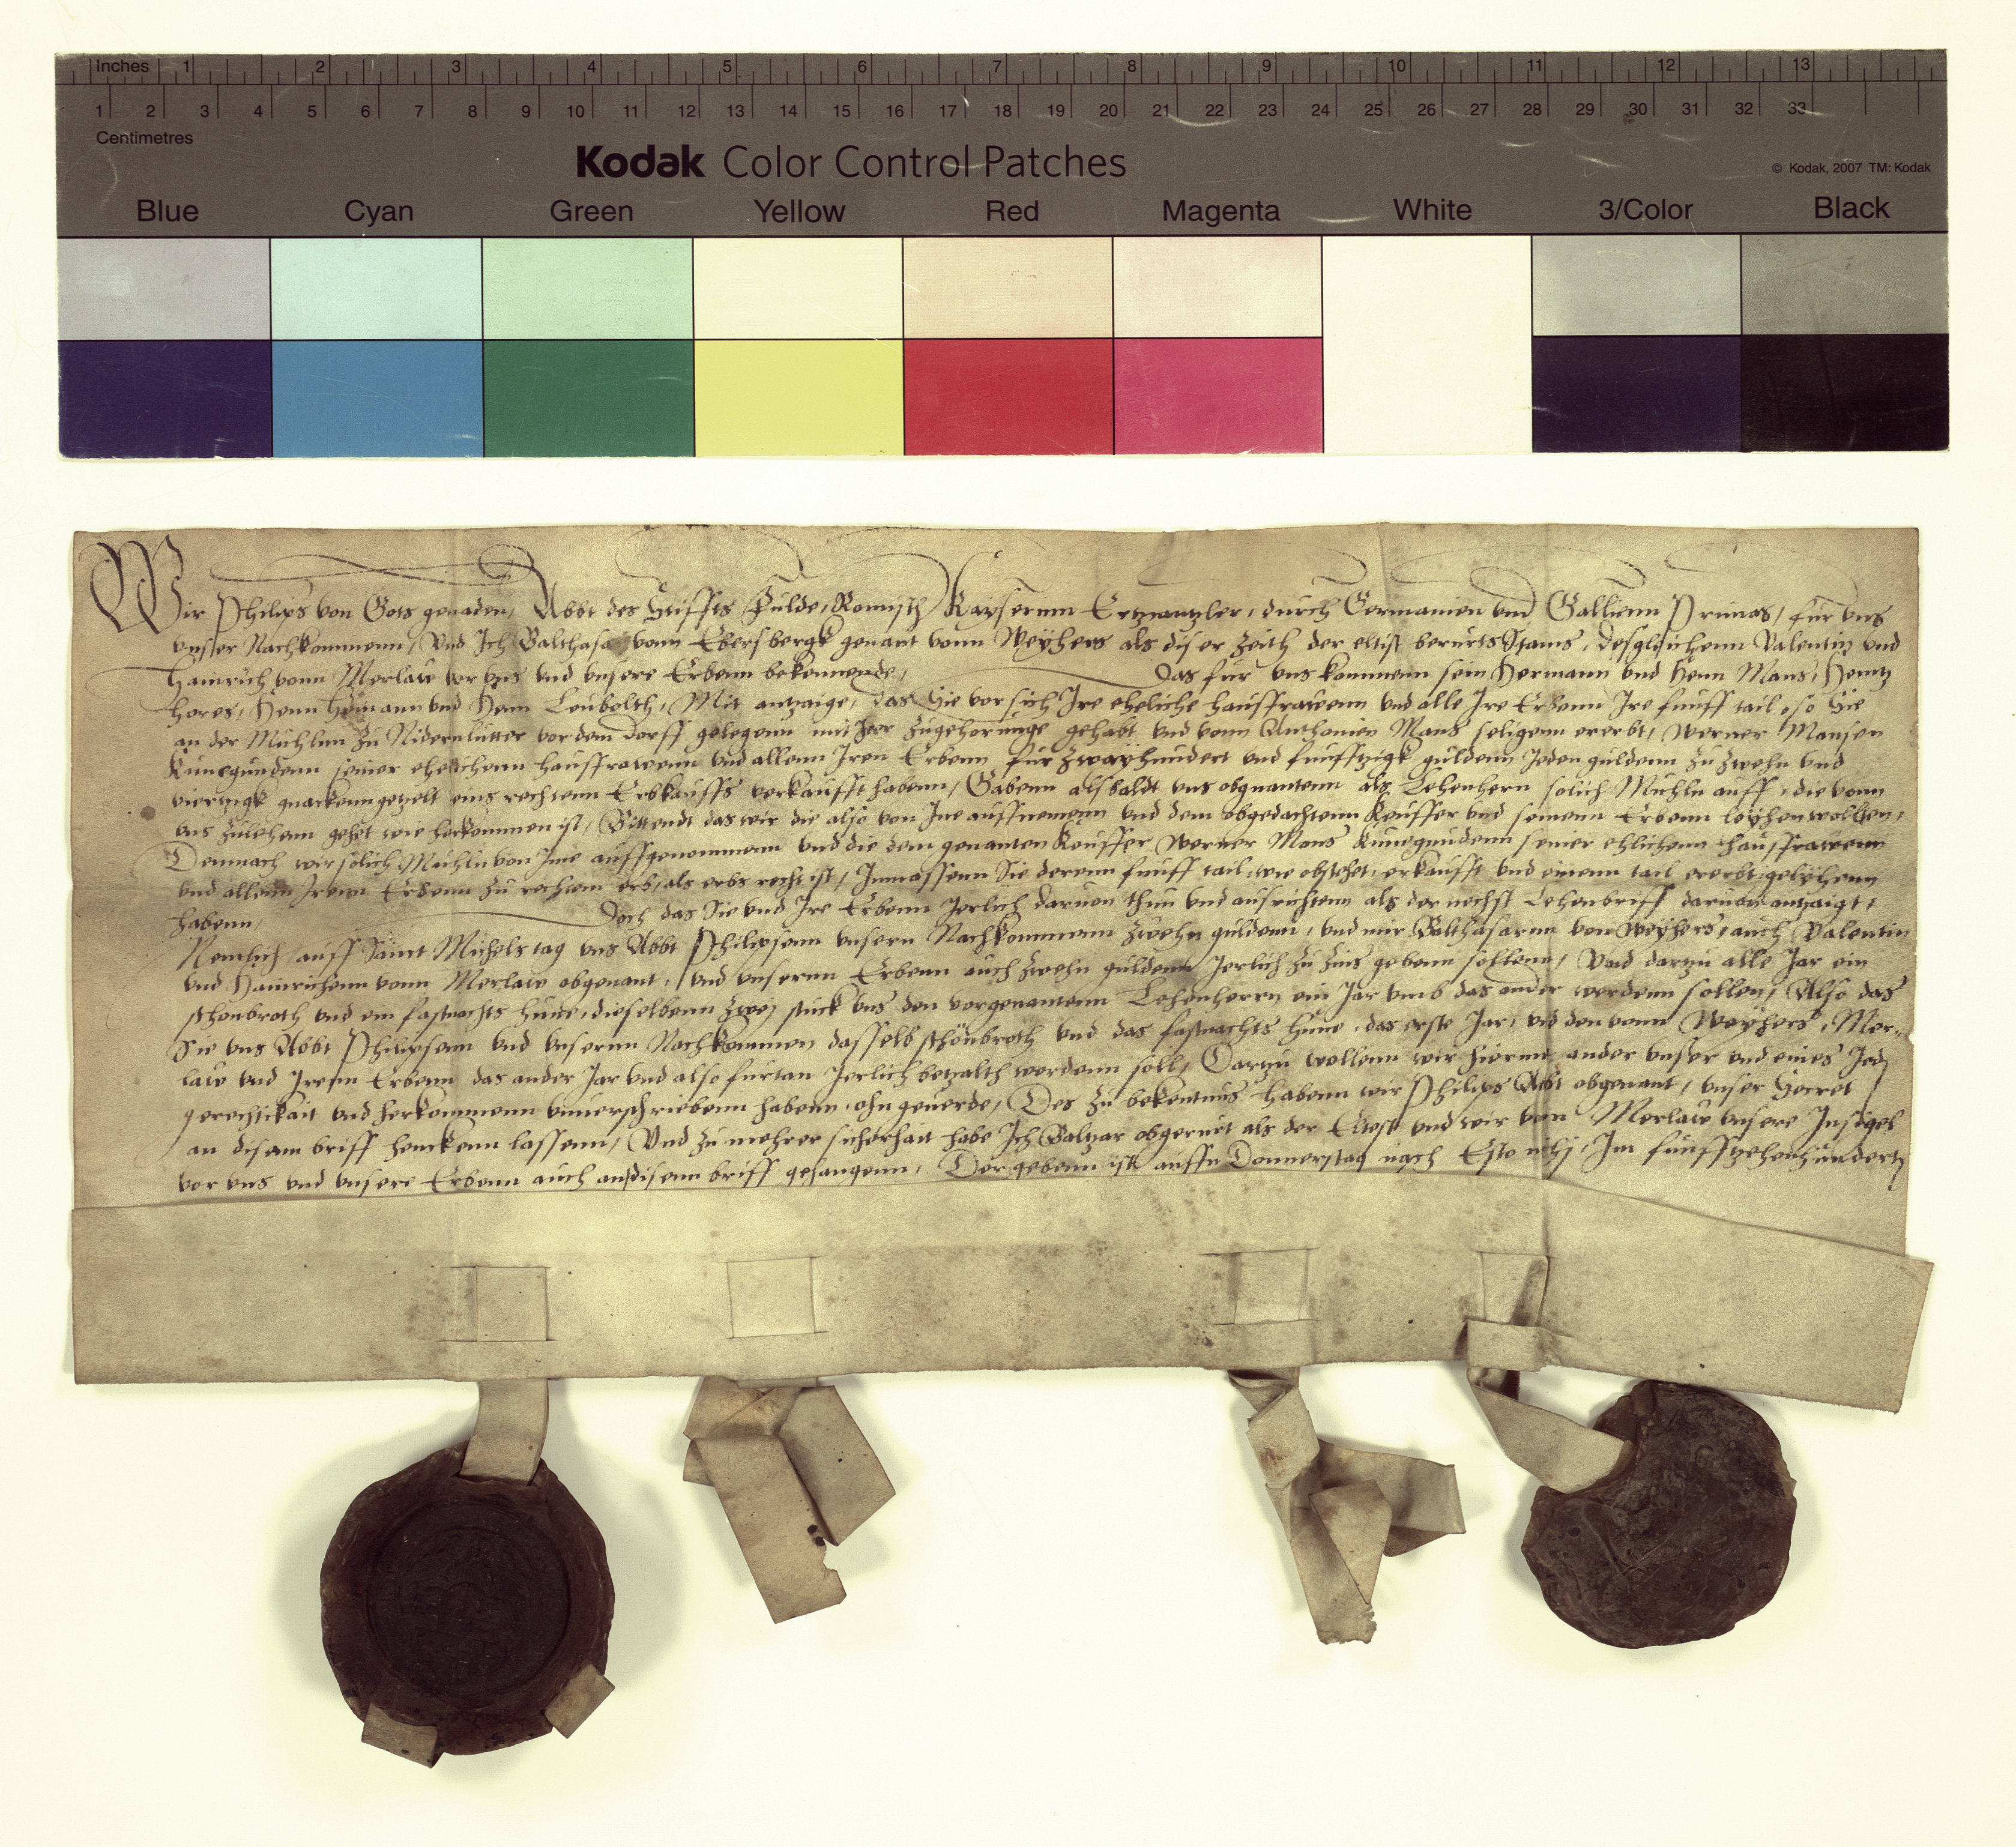 Inches 1 2 3 4 5 6 7 8 9 10 11 12 13
1 2 3 4 5 6 7 8 9 10 11 12 13 14 15 16 17 18 19 20 21 22 23 24 25 26 27 28 29 30 31 32 33
Centimetres
Kodak Color Control Patches
© Kodak, 2007 TM: Kodak
Blue Cyan Green Yellow Red Magenta White 3/Color Black
Wir Philips von Gots genaden, Abbt des Stiffts Fulde, Romisch Kayserinn Ertzcantzler, durch Germanien vnd Gallienn Primas, fur vns
vnser Nachkommenn, Vnd Ich Balthasar vonn Ebersbergk genant vonn Weyhers als diser Zeith der eltist berurts Stams, desgleichenn Valentin vnd
Hainrich vonn Merlaw vor vns vnd vnsere Erbenn bekennende, das fur vns kommenn sein Hermann vnd Henn Mans, Heintz
Hores, Henn vnd Henn Leubolth, Mit antzaige, das Sie vor sich Ire eheliche hausfrawenn vnd alle Ire Erbenn Ire funff tail, so Sie
an der Muhlnn zu Nidernlutter vor dem dorff gelegenn mit Irer Zugehorunge gehabt vnd vonn Anthonien Mans seligenn ererbt, Werner Mansen
Kunegundenn seiner ehelichenn hausfrawenn vnd allenn Iren Erbenn fur Zwayhundert vnd funfftzigk guldenn Jeden guldenn zu Zwehn vnd
viertzigk gnackenn getzelt eins rechtenn Erbkauffs verkaufft habenn, Gabenn alsbaldt vns obgnantenn als Lehenhern solich Muhln auff, die vonn
vns zulehenn gehet wie herkommen ist, Bittendt das wir die also von Ine auffnemenn vnd dem obgedachtenn Keuffer vnd seinenn Erbenn leyhen wolten,
Demnach wir solich Muhln von Ine auffgenommenn vnd die dem genanten Keuffer Werner Mans Kunegundenn seiner ehlichenn hausfrawenn
vnd allenn Irenn Erbenn zu rechtem erb, als erbs recht ist, Inmassenn Sie derenn funff tail, wie obstehet, erkaufft vnd einenn tail ererbt, gelyhenn
habenn, Doch das Sie vnd Ire Erbenn Jerlich daruon thun vnd ausrichtenn als der nechst Lehenbriff daruon antzaigt,
Nemlich auff Sanct Michels tag vns Abbt Philipsenn vnsern Nachkommenn Zwehn guldenn, vnd mir Balthasarnn von Weyhers, auch Valentin
vnd Hainrichenn vonn Merlaw obgenant, vnd vnsernn Erbenn auch Zwehn guldenn Jerlich zu Zins gebenn sollenn, Vnd dartzu alle Jar ein
schonbroth vnd ein fastnachts hune, dieselbenn Zwej stuck vns den vorgenantenn Lehenherrn ein Jar vmb das ander werdenn sollen, Also das
Sie vns Abbt Philipsenn vnd vnsernn Nachkommen dasselb schönbroth vnd das fastnachts hune, das erste Jar, vnd den vonn Weyhers, Mer-
law vnd Irenn Erbenn das ander Jar vnd also furtan Jerlich betzalth werdenn soll, Dartzu wollenn wir hierinn ander vnser vnd eines Jedj
gerechtikait vnd herkommenn vnuerschriebenn habenn, ohn geuerde, Des zu bekentnus habenn wir Philips Abt obgenant, vnser Secret
an disem briff henckenn lassenn, Vnd zu mehrer sicherhait habe Ich Baltzar obgerurt als der Eltest vnd wir von Merlaw vnsere Insigel
vor vns vnd vnsere Erbenn auch an disenn briff gehangenn, Der gebenn ist auffn Donnerstag nach Esto michj, Im funfftzehenhundertz